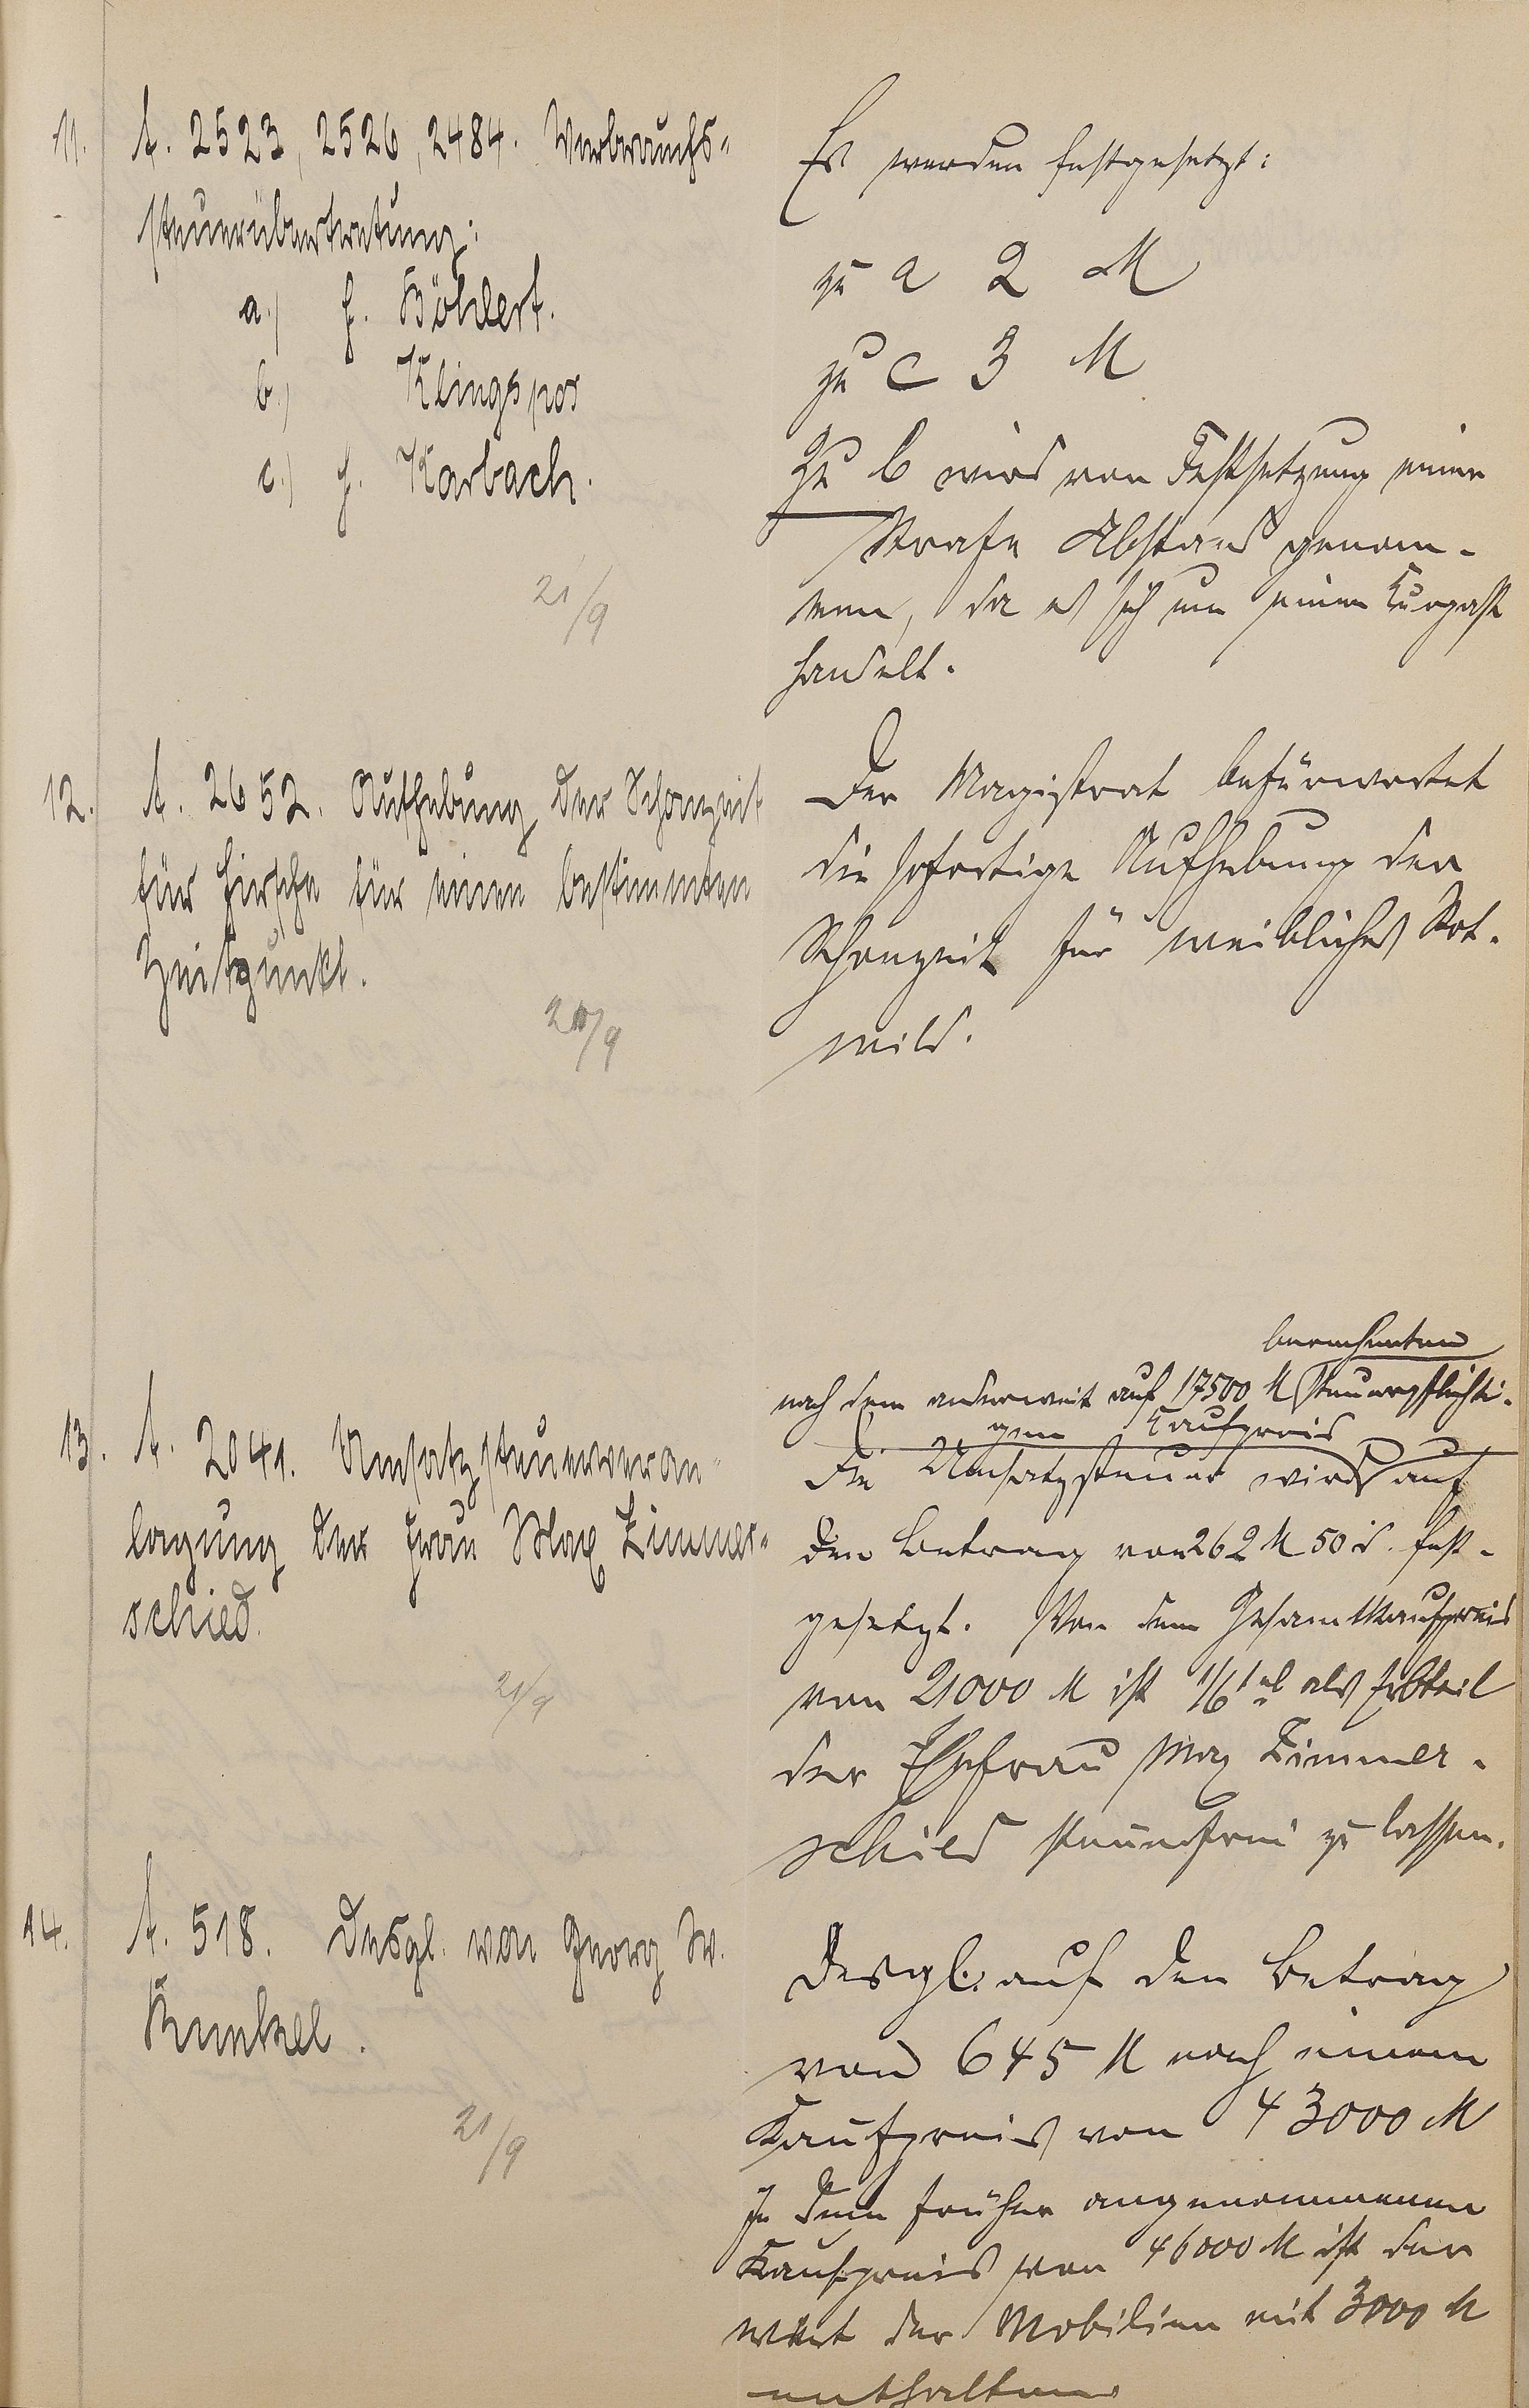 11.
A. 2523, 2526, 2484. Verbrauchs-
steuerübertretung:
a.) H. Böhlert.
b.) Klingspor
c.) H. Karbach.
21/9
Es werden festgesetzt:
zu a 2 M
zu c 3 M
Zu b wird von Festsetzung einer
Strafe Abstand genom-
men, da es sich um einen Kurgast
handelt.
12.
A. 2652. Aufhebung der Schonzeit
für Hirsche für einen bestimmten
Zeitpunkt.
20/9
Der Magistrat befürwortet
die sofortige Aufhebung der
Schonzeit für weibliches Rot-
wild.
13.
A. 2041. Umsatzsteuerveran-
lagung der Frau Max Zimmer-
schied.
21/9
berechneten
nach dem anderweit auf 17500 M steuerpflichti-
gen Kaufpreis
Die Umsatzsteuer wird auf
den Betrag von 262 M 50 d. fest-
gesetzt. Von dem Gesamtkaufpreis
von 21000 M ist 1/6tel als Erbteil
der Ehefrau Max Zimmer-
schied steuerfrei zu lassen.
14.
A. 518. Desgl. von Georg W.
Kunkel.
21/9
Desgl. auf den Betrag
von 645 M nach einem
Kaufpreis von 43000 M
In dem früher angenommenen
Kaufpreis von 46000 M ist der
Wert der Mobilien mit 3000 M
enthalten